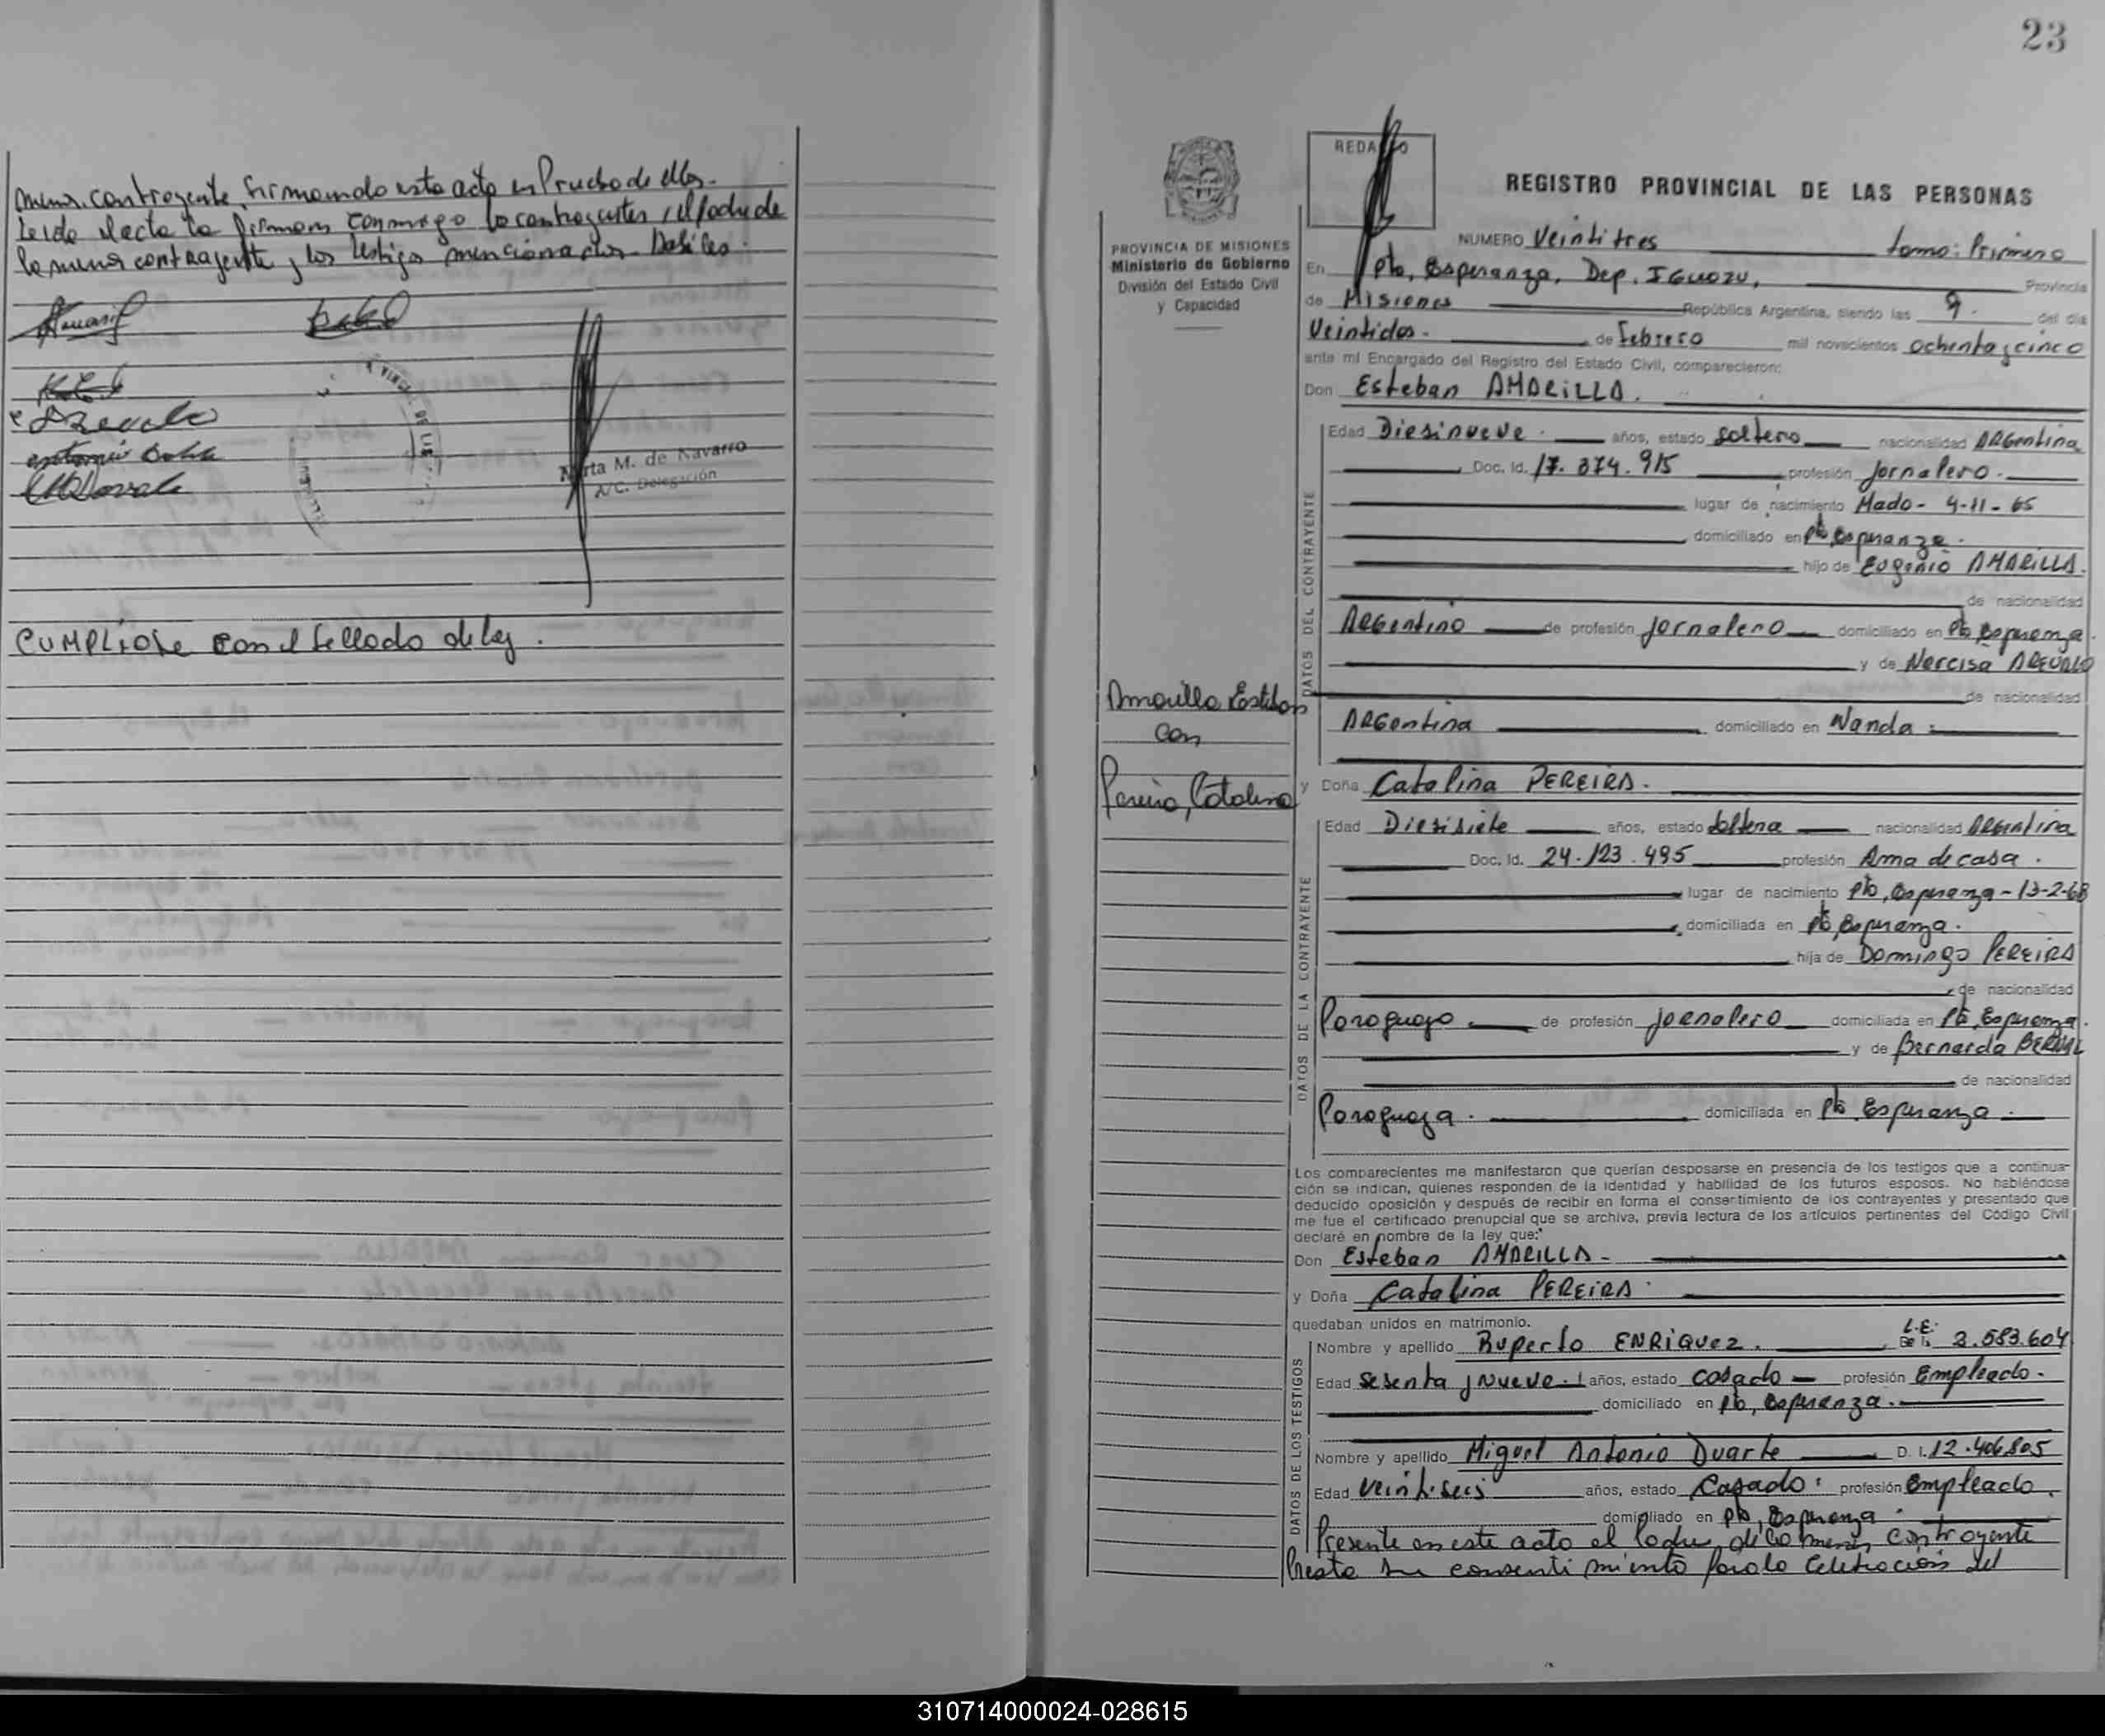 menor contrayente, firmando este acto en Prueba de ello.
Leida el acta la firman conmigo lo contrayentes, el padre de
la menor contrayente y los testigo mencionados
Marta M. de Navarro
A/C. Delegación
CUMPLIOSE con el sellado de ley.
23
REDA
REGISTRO PROVINCIAL DE LAS PERSONAS
PROVINCIA DE MISIONES
Ministerio de Gobierno
División del Estado Civil
y Capacidad
NUMERO Veintitres tomo: Primero
En Pto, Esperanza, Dep. IGUAZU, Provincia
de Misiones República Argentina, siendo las 9. del día
Veintidos. de febrero mil novecientos ochenta y cinco
ante mí Encargado del Registro del Estado Civil, comparecieron:
Don Esteban AMARILLA.
DATOS DEL CONTRAYENTE
Edad Diesinueve años, estado soltero nacionalidad ARGentina
Doc. Id. 17.374.915 profesión Jornalero.
lugar de nacimiento Mado - 4-11-65
domiciliado en Pto, Esperanza.
hijo de Eugenio AMARILLA.
de nacionalidad
ARGentino de profesión Jornalero domiciliado en Pto Esperanza.
y de Narcisa AREVALO
de nacionalidad
ARGentina domiciliado en Wanda
Amarilla Esteban
con
Pereira, Catalina
y Doña Catalina PEREIRA.
DATOS DE LA CONTRAYENTE
Edad Diesisiete años, estado soltera nacionalidad ARGentina
Doc. Id. 24.123.495 profesión Ama de casa.
lugar de nacimiento Pto, Esperanza - 13-2-68
domiciliada en Pto, Esperanza.
hija de Domingo PEREIRA
de nacionalidad
Paraguayo. de profesión jornalero domiciliada en Pto, Esperanza.
y de Bernarda BERNAL
de nacionalidad
Paraguaya. domiciliada en Pto Esperanza.
Los comparecientes me manifestaron que querían desposarse en presencia de los testigos que a continua-
ción se indican, quienes responden de la identidad y habilidad de los futuros esposos. No habiéndose
deducido oposición y después de recibir en forma el consentimiento de los contrayentes y presentado que
me fue el certificado prenupcial que se archiva, previa lectura de los artículos pertinentes del Código Civil
declaré en nombre de la ley que:
Don Esteban AMARILLA -
y Doña Catalina PEREIRA.
quedaban unidos en matrimonio.
DATOS DE LOS TESTIGOS
Nombre y apellido Ruperto ENRiQuez. L.E. 2.583.604
Edad Sesenta y Nueve. años, estado casado profesión Empleado.
domiciliado en Pto, Esperanza.
Nombre y apellido Miguel Antonio Duarte D. I. 12.406.805
Edad Veintiseis años, estado Casado profesión Empleado.
domiciliado en Pto, Esperanza
Presente en este acto el Padre de la menor contrayente
Presta su consentimiento para la celebracion del
310714000024-028615